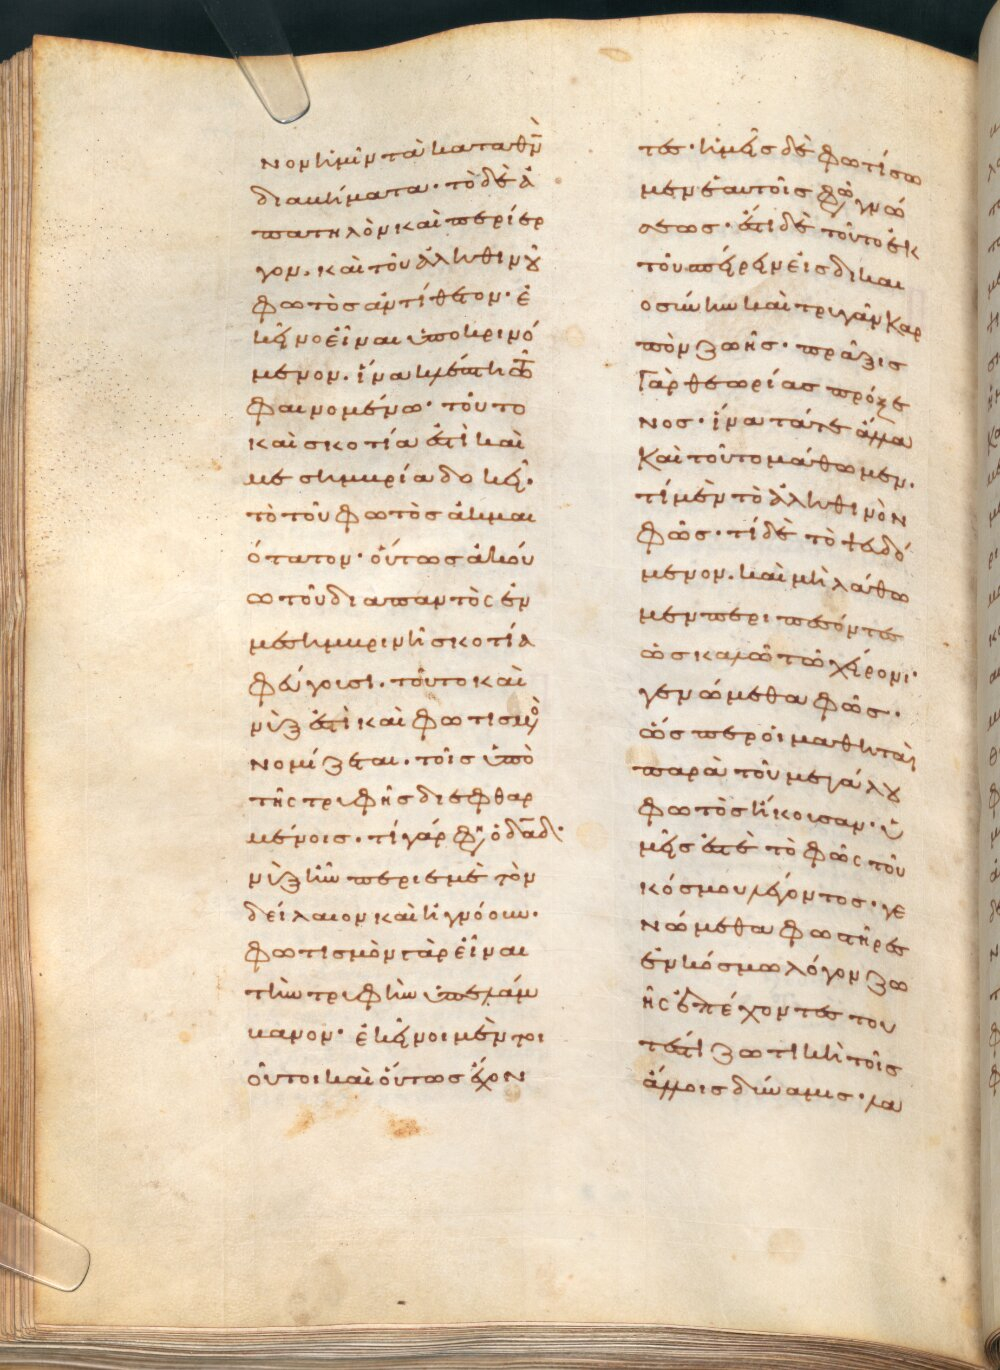 νον ἡμῖν τὰ κατὰ θ̅ν̅
διαβήματα· τὸ δὲ ἀ
πατηλὸν καὶ περίερ
γον. καὶ τοῦ ἀληθινοῦ
φωτὸς ἀντίθετον· ἐ
κεῖνο εἶναι ὑποκρινό
μενον. ἵνα κλέπτη τῶ
φαινομένω· τοῦτο
καὶ σκοτία ἐστὶ καὶ
μεσημβρία δοκεῖ.
τὸ τοῦ φωτὸς ἀκμαι
ότατον· οὕτως ἀκού
ω τοῦ διαπαντὸς ἐν
μεσημβρινῆ σκοτία
φεύγουσι. τοῦτο καὶ
νὺξ ἐστὶ καὶ φωτισμὸς
νομίζεται. τοῖς ὑπὸ
τῆς τρυφῆς διεφθαρ
μένοις. τί γάρ φησιν ὁ δ̅α̅δ̅·
νὺξ ἦν περὶ ἐμὲ τὸν
δείλαιον καὶ ἠγνόουν·
φωτισμὸν γὰρ εἶναι
τὴν τρυφὴν ὑπελάμ
βανον· ἐκεῖνοι μέν τοι
οὗτοι καὶ οὕτως ἔχον
τες· ἡμεῖς δὲ φωτίσω
μεν ἑαυτοῖς φῶς γνώ
σεως· ἔσται δὲ τοῦτο ἐκ
τοῦ σπείρειν εἰς δικαι
οσύνην καὶ τρυγᾶν καρ
πὸν ζωῆς· πρᾶξις
γὰρ θεωρίας πρόξε
νος· ἵνα τά τε ἄλλα
καὶ τοῦτο μάθωμεν.
τί μὲν τὸ ἀληθινὸν
φῶς· τί δὲ τὸ ψευδό
μενον. καὶ μὴ λάθω
μεν περιπεσόντες
ὡς καλῶ τῶ χείρονι·
γενώμεθα φῶς.
ὥσπερ οἱ μαθηταὶ
παρὰ τοῦ μεγάλου
φωτὸς ἤκουσαν· ὑ
μεῖς ἐστε τὸ φῶς τοῦ
κόσμου λέγοντος· γε
νώμεθα φωστῆρες
ἐν κόσμω λόγον ζω
ῆς ἐπέχοντες του
τέστι ζωτικὴ τοῖς
ἄλλοις δύναμις· λα